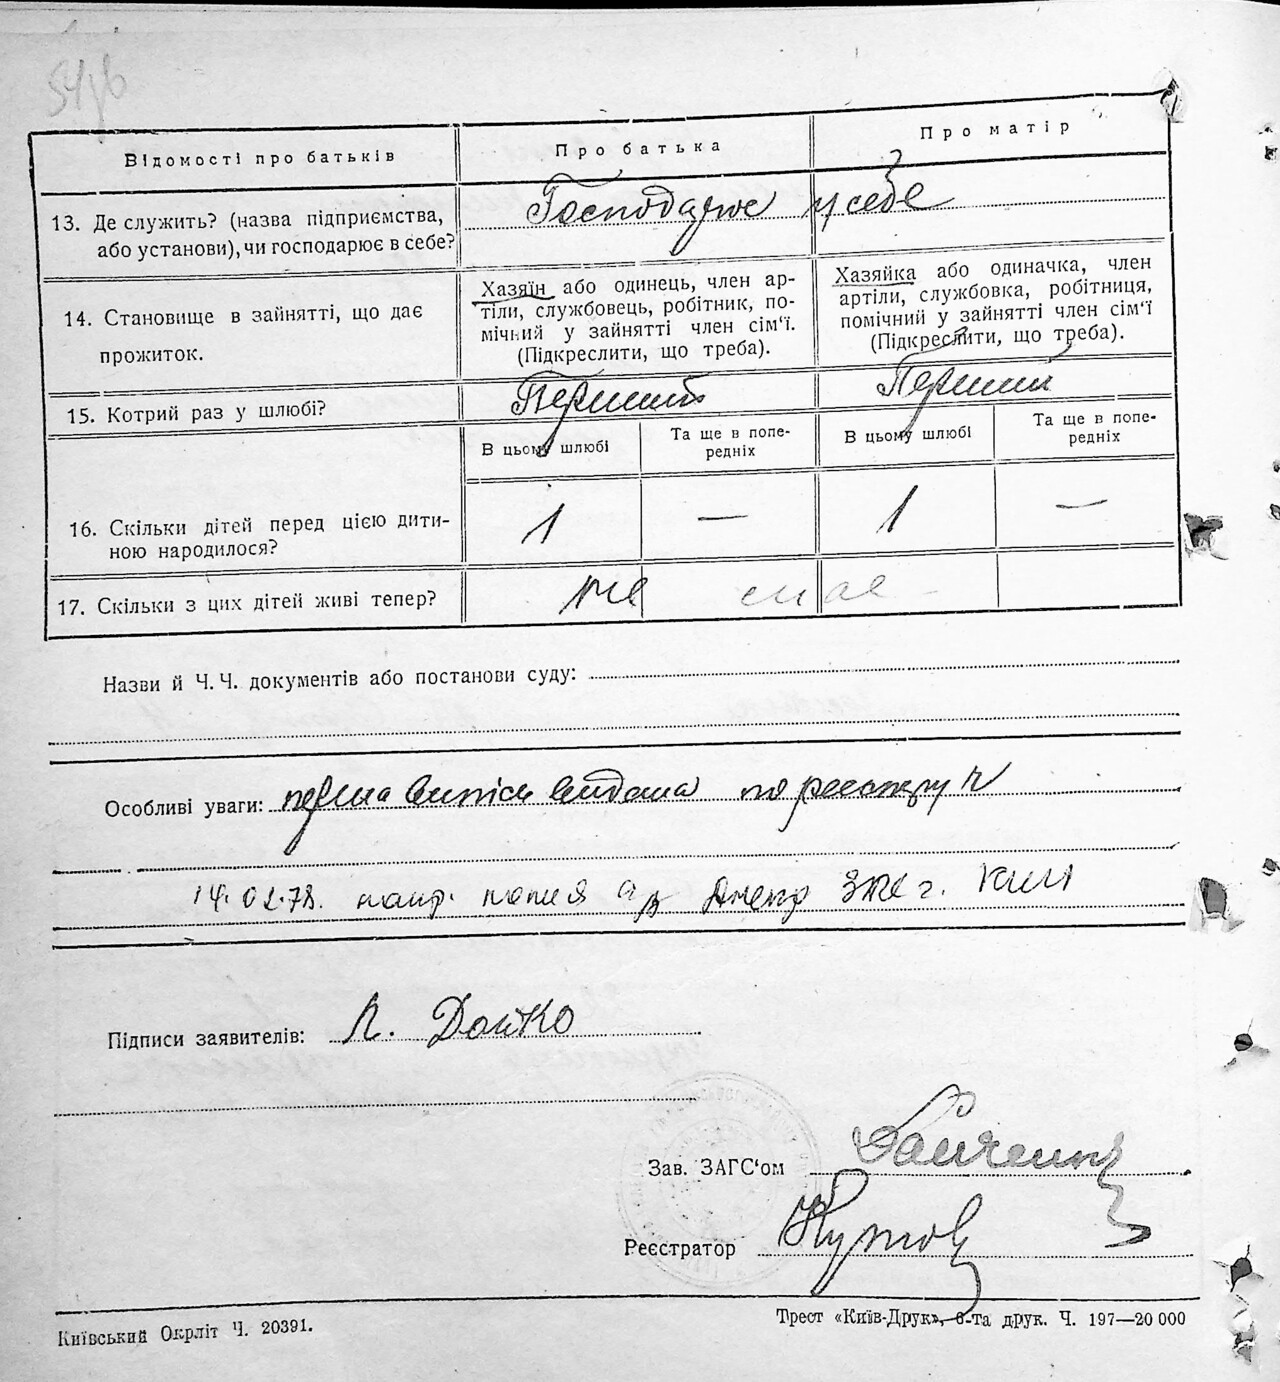 54зв
Відомості про батьків
Про батька
Про матір
13. Де служить? (назва підприємства,
або установи), чи господарює в себе?
Господарює у себе
14. Становище в зайнятті, що дає
прожиток.
Хазяїн або одинець, член ар-
тіли, службовець, робітник, по-
мічний у зайнятті член сім'ї.
(Підкреслити, що треба).
Хазяйка або одиначка, член
артіли, службовка, робітниця,
помічний у зайнятті член сім'ї
(Підкреслити, що треба).
15. Котрий раз у шлюбі?
Перший
Перший
В цьому шлюбі
Та ще в попе-
редніх
В цьому шлюбі
Та ще в попе-
редніх
16. Скільки дітей перед цією дити-
ною народилося?
1 — 1 —
17. Скільки з цих дітей живі тепер?
не має
Назви й Ч. Ч. документів або постанови суду:
Особливі уваги: перша випись видана по реєстру Ч
14.02.78. напр. копия а/з Днепр ЗАГС г. Киш
Підписи заявителів: Л. Дойко
Зав. ЗАГС'ом
Реєстратор
Київський Окрліт Ч. 20391.
Трест «Київ-Друк», 6-та друк. Ч. 197—20 000